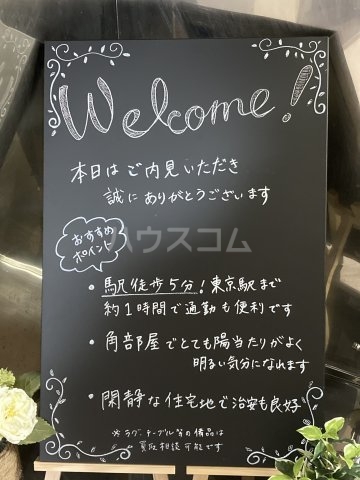 Welcome!
本日はご内見いただき
誠にありがとうございます
おすすめ
ポイント
ハウスコム
・駅徒歩5分!東京駅まで
約1時間で通勤も便利です
・角部屋でとても陽当たりがよく
明るい気分になれます
・閑静な住宅地で治安も良好
※ラグ、テーブル等の備品は
買取相談可能です